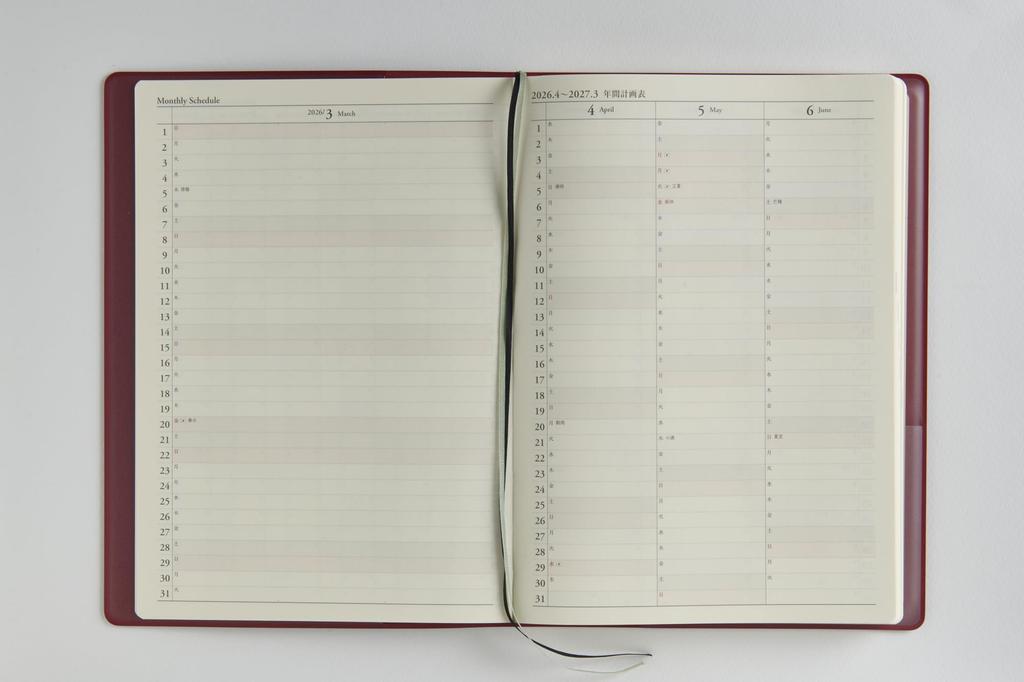 Monthly Schedule
2026/3 March
1 日
2 月
3 火
4 水
5 木 啓蟄
6 金
7 土
8 日
9 月
10 火
11 水
12 木
13 金
14 土
15 日
16 月
17 火
18 水
19 木
20 金 春分
21 土
22 日
23 月
24 火
25 水
26 木
27 金
28 土
29 日
30 月
31 火
2026.4〜2027.3 年間計画表
4 April 5 May 6 June
1 水 金 月
2 木 土 火
3 金 日 水
4 土 月 木
5 日 清明 火 立夏 金
6 月 水 振休 土 芒種
7 火 木 日
8 水 金 月
9 木 土 火
10 金 日 水
11 土 月 木
12 日 火 金
13 月 水 土
14 火 木 日
15 水 金 月
16 木 土 火
17 金 日 水
18 土 月 木
19 日 火 金
20 月 穀雨 水 土
21 火 木 小満 日 夏至
22 水 金 月
23 木 土 火
24 金 日 水
25 土 月 木
26 日 火 金
27 月 水 土
28 火 木 日
29 水 金 月
30 木 土 火
31 日